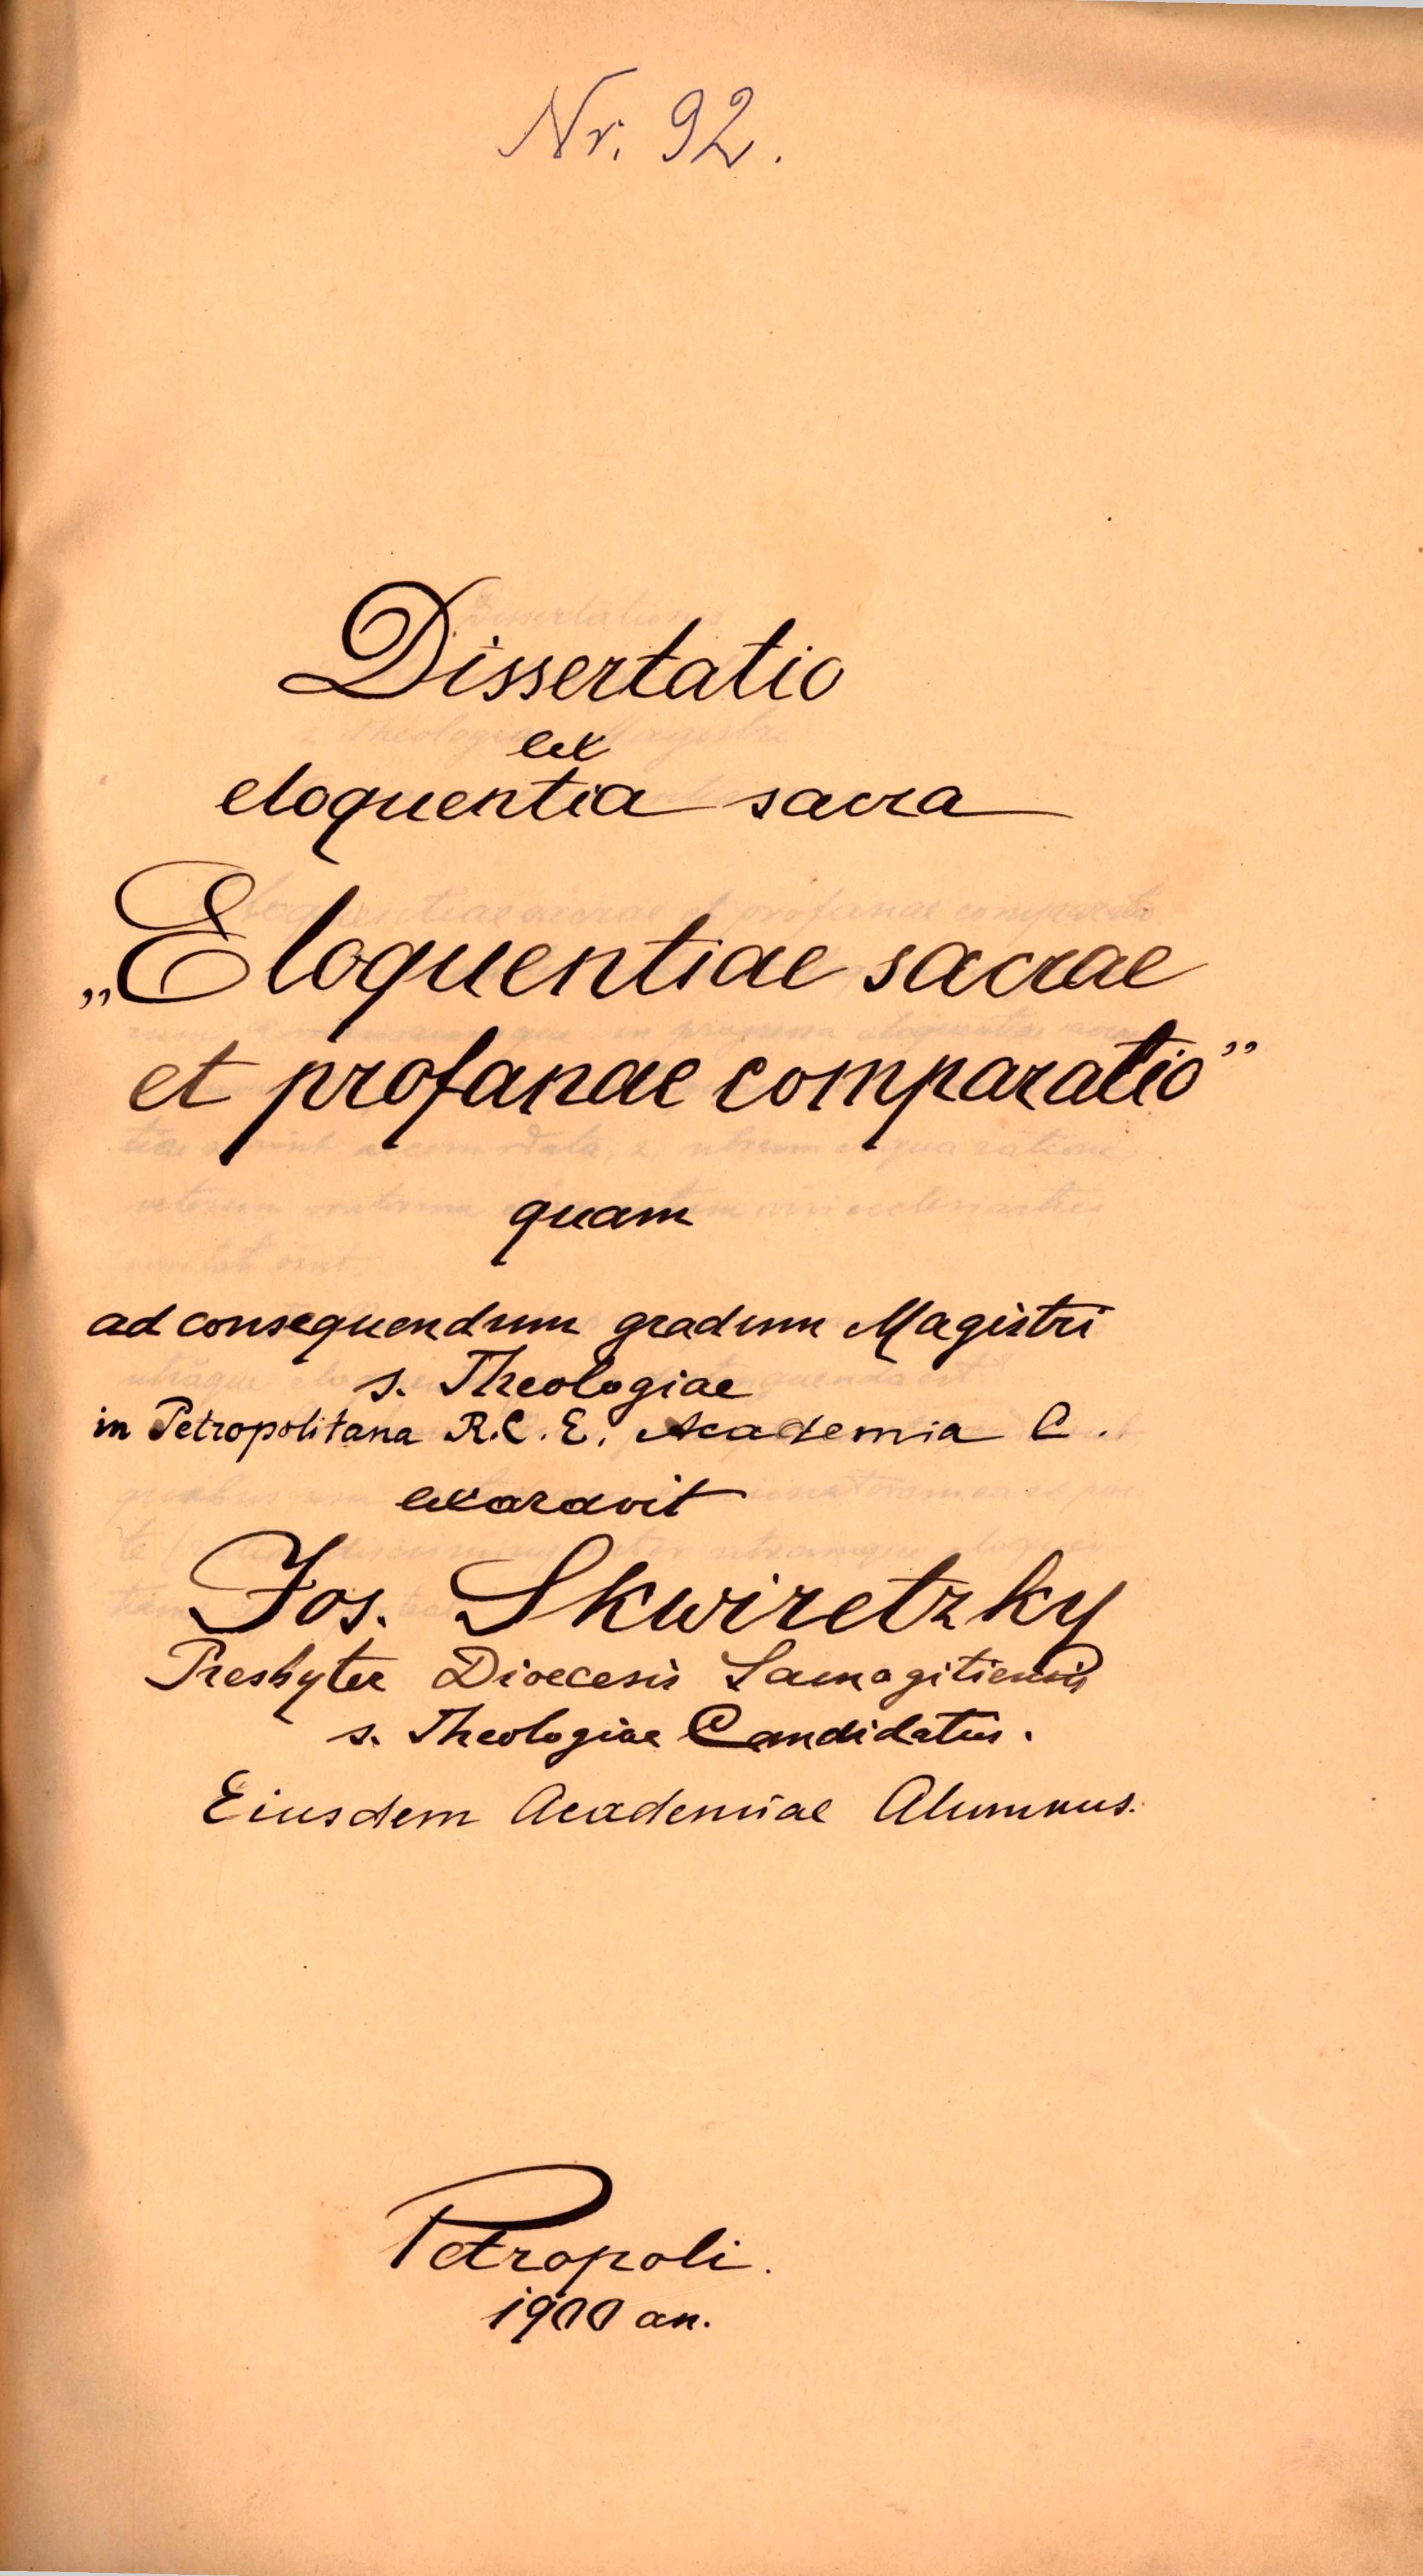 Nr. 92.
Dissertatio
ex
eloquentia sacra
„Eloquentiae sacrae
et profanae comparatio”
quam
ad consequendum gradum Magistri
s. Theologiae
in Petropolitana R.C.E. Academia C.
exaravit
Jos. Skwiretzky
Presbyter Dioecesis Samogitiensis
s. Theologiae Candidatus.
Eiusdem Academiae Alumnus.
Petropoli.
1900 an.